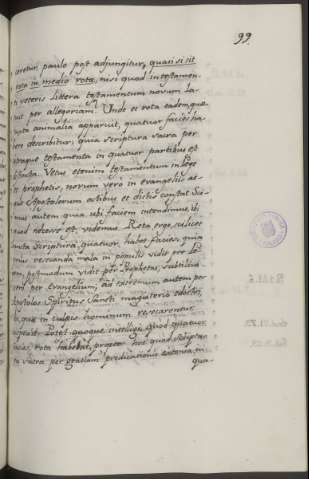 99.
paulo post adjungitur, quasi sit
rota in medio rotæ, nisi quod in testamen-
ti veteris littera testamentum novum la-
tuit per allegoriam? Unde et rota eademque
juxta animalia apparuit, quatuor facies ha-
bere describitur, quia scriptura sacra per
utraque testamenta in quatuor partibus est
distincta. Vetus etenim testamentum in Lege
et Prophetis, novum vero in evangeliis at-
que Apostolorum actibus et dictis constat. Sci-
mus autem quia ubi faciem intendimus, ibi
quod necesse est, videmus. Rota ergo, scilicet
sancta Scriptura, quatuor habet facies, quia
prius resecanda mala in populis vidit per Le-
gem, postmodum vidit per Prophetas, subtilius
per Evangelium, ad extremum autem per
Apostolos Spiritus Sancti magisterio edoctos,
quæ in culpis hominum resecarentur
Potest quoque intelligi quod quatuor
facies rota habebat, propter hoc quod Scriptu-
ra sacra per gratiam prædicationis extensa, in
qua-